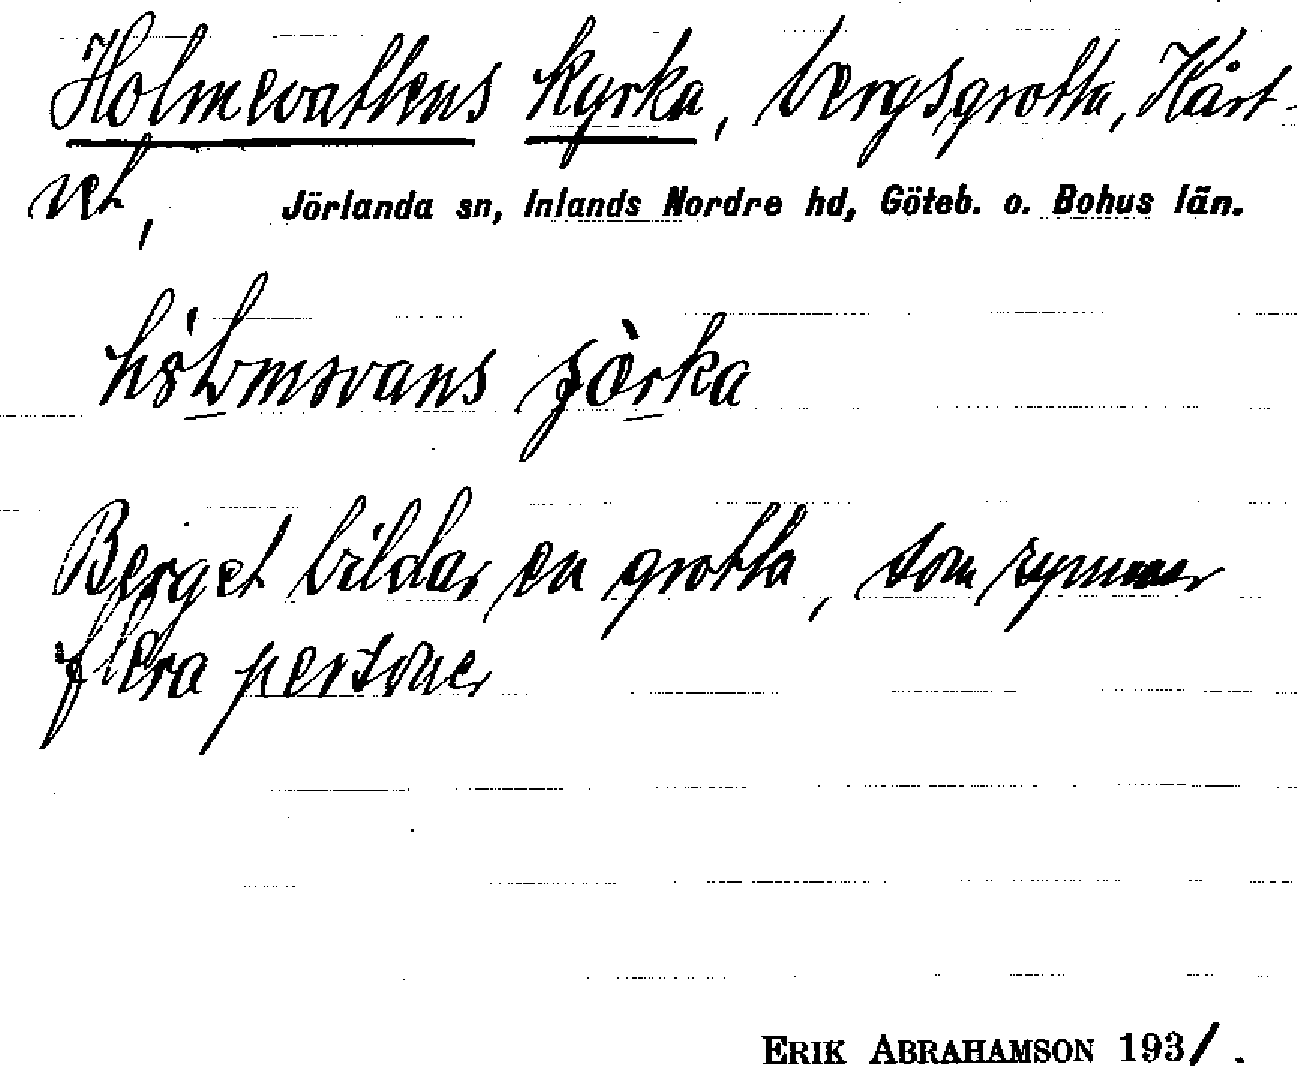 Holmevattens Kyrka, bergsgrotta, Hårt-
vet,
Jörlanda sn, Inlands Nordre hd, Göteb. o. Bohus län.
Berget bildar en grotta, som rymmer
flera personer
ERIK ABRAHAMSON 1931.